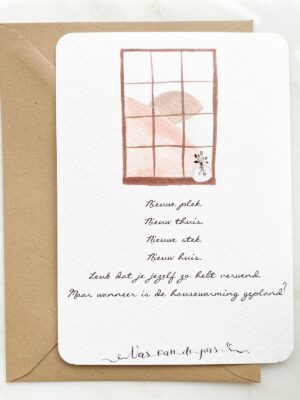 Nieuwe plek.
Nieuw thuis.
Nieuwe stek.
Nieuw huis.
Leuk dat je jezelf zo hebt verwend.
Maar wanneer is de housewarming gepland?
Vers van de pers